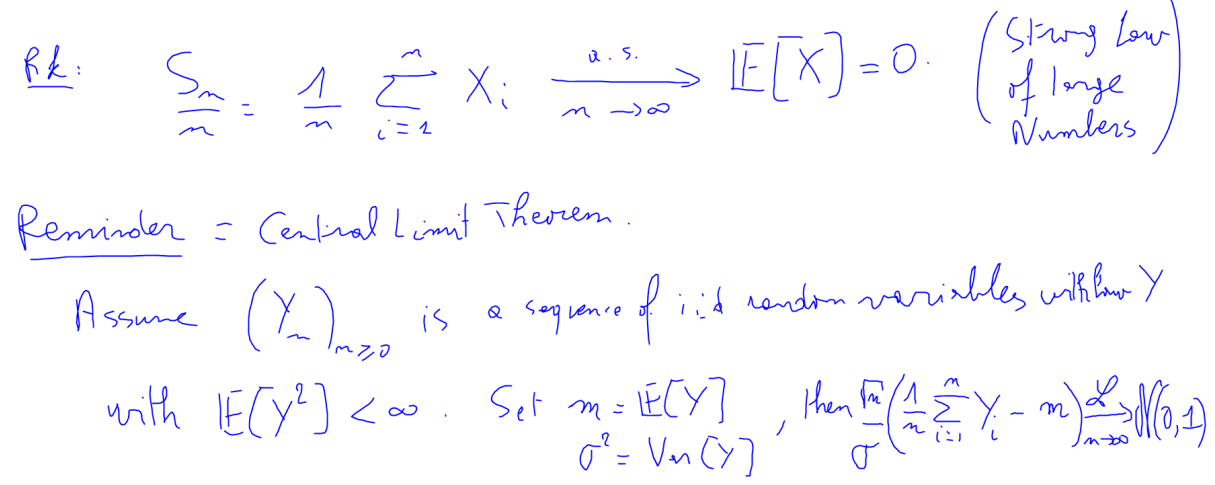 Rk: S_n/n = 1/n ∑_{i=1}^{n} X_i →^{a.s.}_{n→∞} 𝔼[X] = 0. (Strong Law of large Numbers)
Reminder = Central Limit Theorem.
Assume (Y_n)_{n≥0} is a sequence of i.i.d random variables with law Y
with 𝔼[Y²] < ∞. Set m = 𝔼[Y], then √n/σ (1/n ∑_{i=1}^{n} Y_i - m) →^{ℒ}_{n→∞} 𝒩(0,1)
σ² = Var(Y]